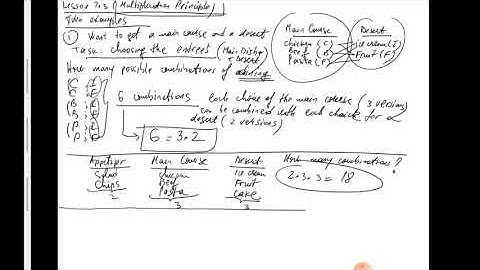 Lesson 7.3 (Multiplication Principle)
Two examples
① Want to get a main course and a desert
Task: choosing the entrees (Main Dish,
1 Desert
Main Course
chicken (C)
Beef (B)
Pasta (P)
Desert
ice cream (I)
Fruit (F)
How many possible combinations of
(C, I)
(C, F)
(B, I)
(B, F)
(P, I)
(P, F)
6 combinations
each choice of the main course (3 versions)
can be combined with each choice for a
desert (2 versions)
6 = 3·2
Appetizer
Salad
Chips
2
Main Course
chicken
Beef
Pasta
3
Desert
ice cream
Fruit
Cake
3
How many combinations?
2·3·3 = 18